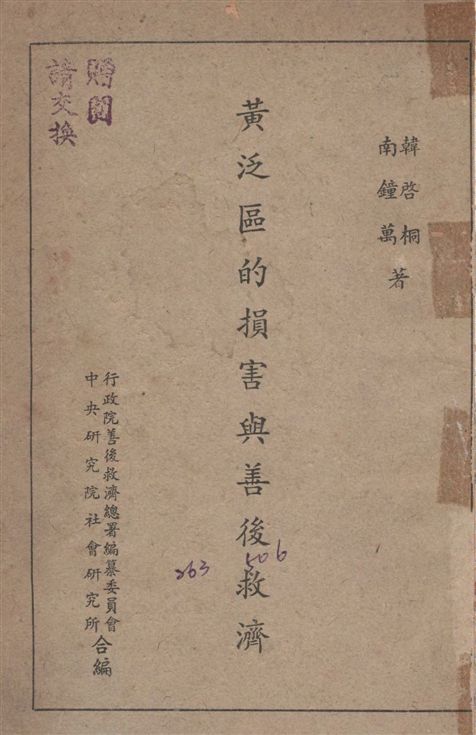 韓啓桐
南鐘萬
著
黃泛區的損害與善後救濟
行政院善後救濟總署編纂委員會
中央研究院社會研究所
合編
贈閱
請交換
263
506